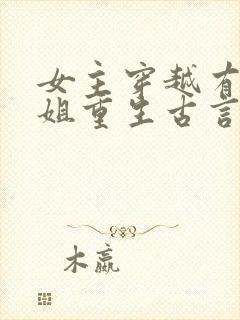 女主穿越有
姐重生古言
木嬴